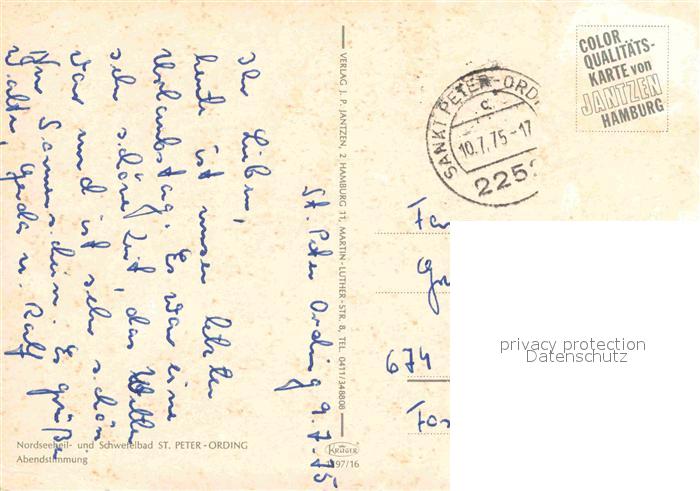 St. Peter Ording 9.7.75
Ihr Lieben,
heute ist unser letzter
Urlaubstag. Es war eine
sehr schöne Zeit, das Wetter
war und ist sehr schön
Nur Sonnenschein. Es grüßen
Walter, Gerda u. Ralf
Nordseeheil- und Schwefelbad ST. PETER-ORDING
Abendstimmung
VERLAG J. P. JANTZEN, 2 HAMBURG 11, MARTIN-LUTHER-STR. 8, TEL. 0411/348808
KRÜGER
1197/16
SANKT PETER-ORDI
c
10.7.75-17
2252
COLOR
QUALITÄTS-
KARTE von
JANTZEN
HAMBURG
Fa
674
privacy protection
Datenschutz